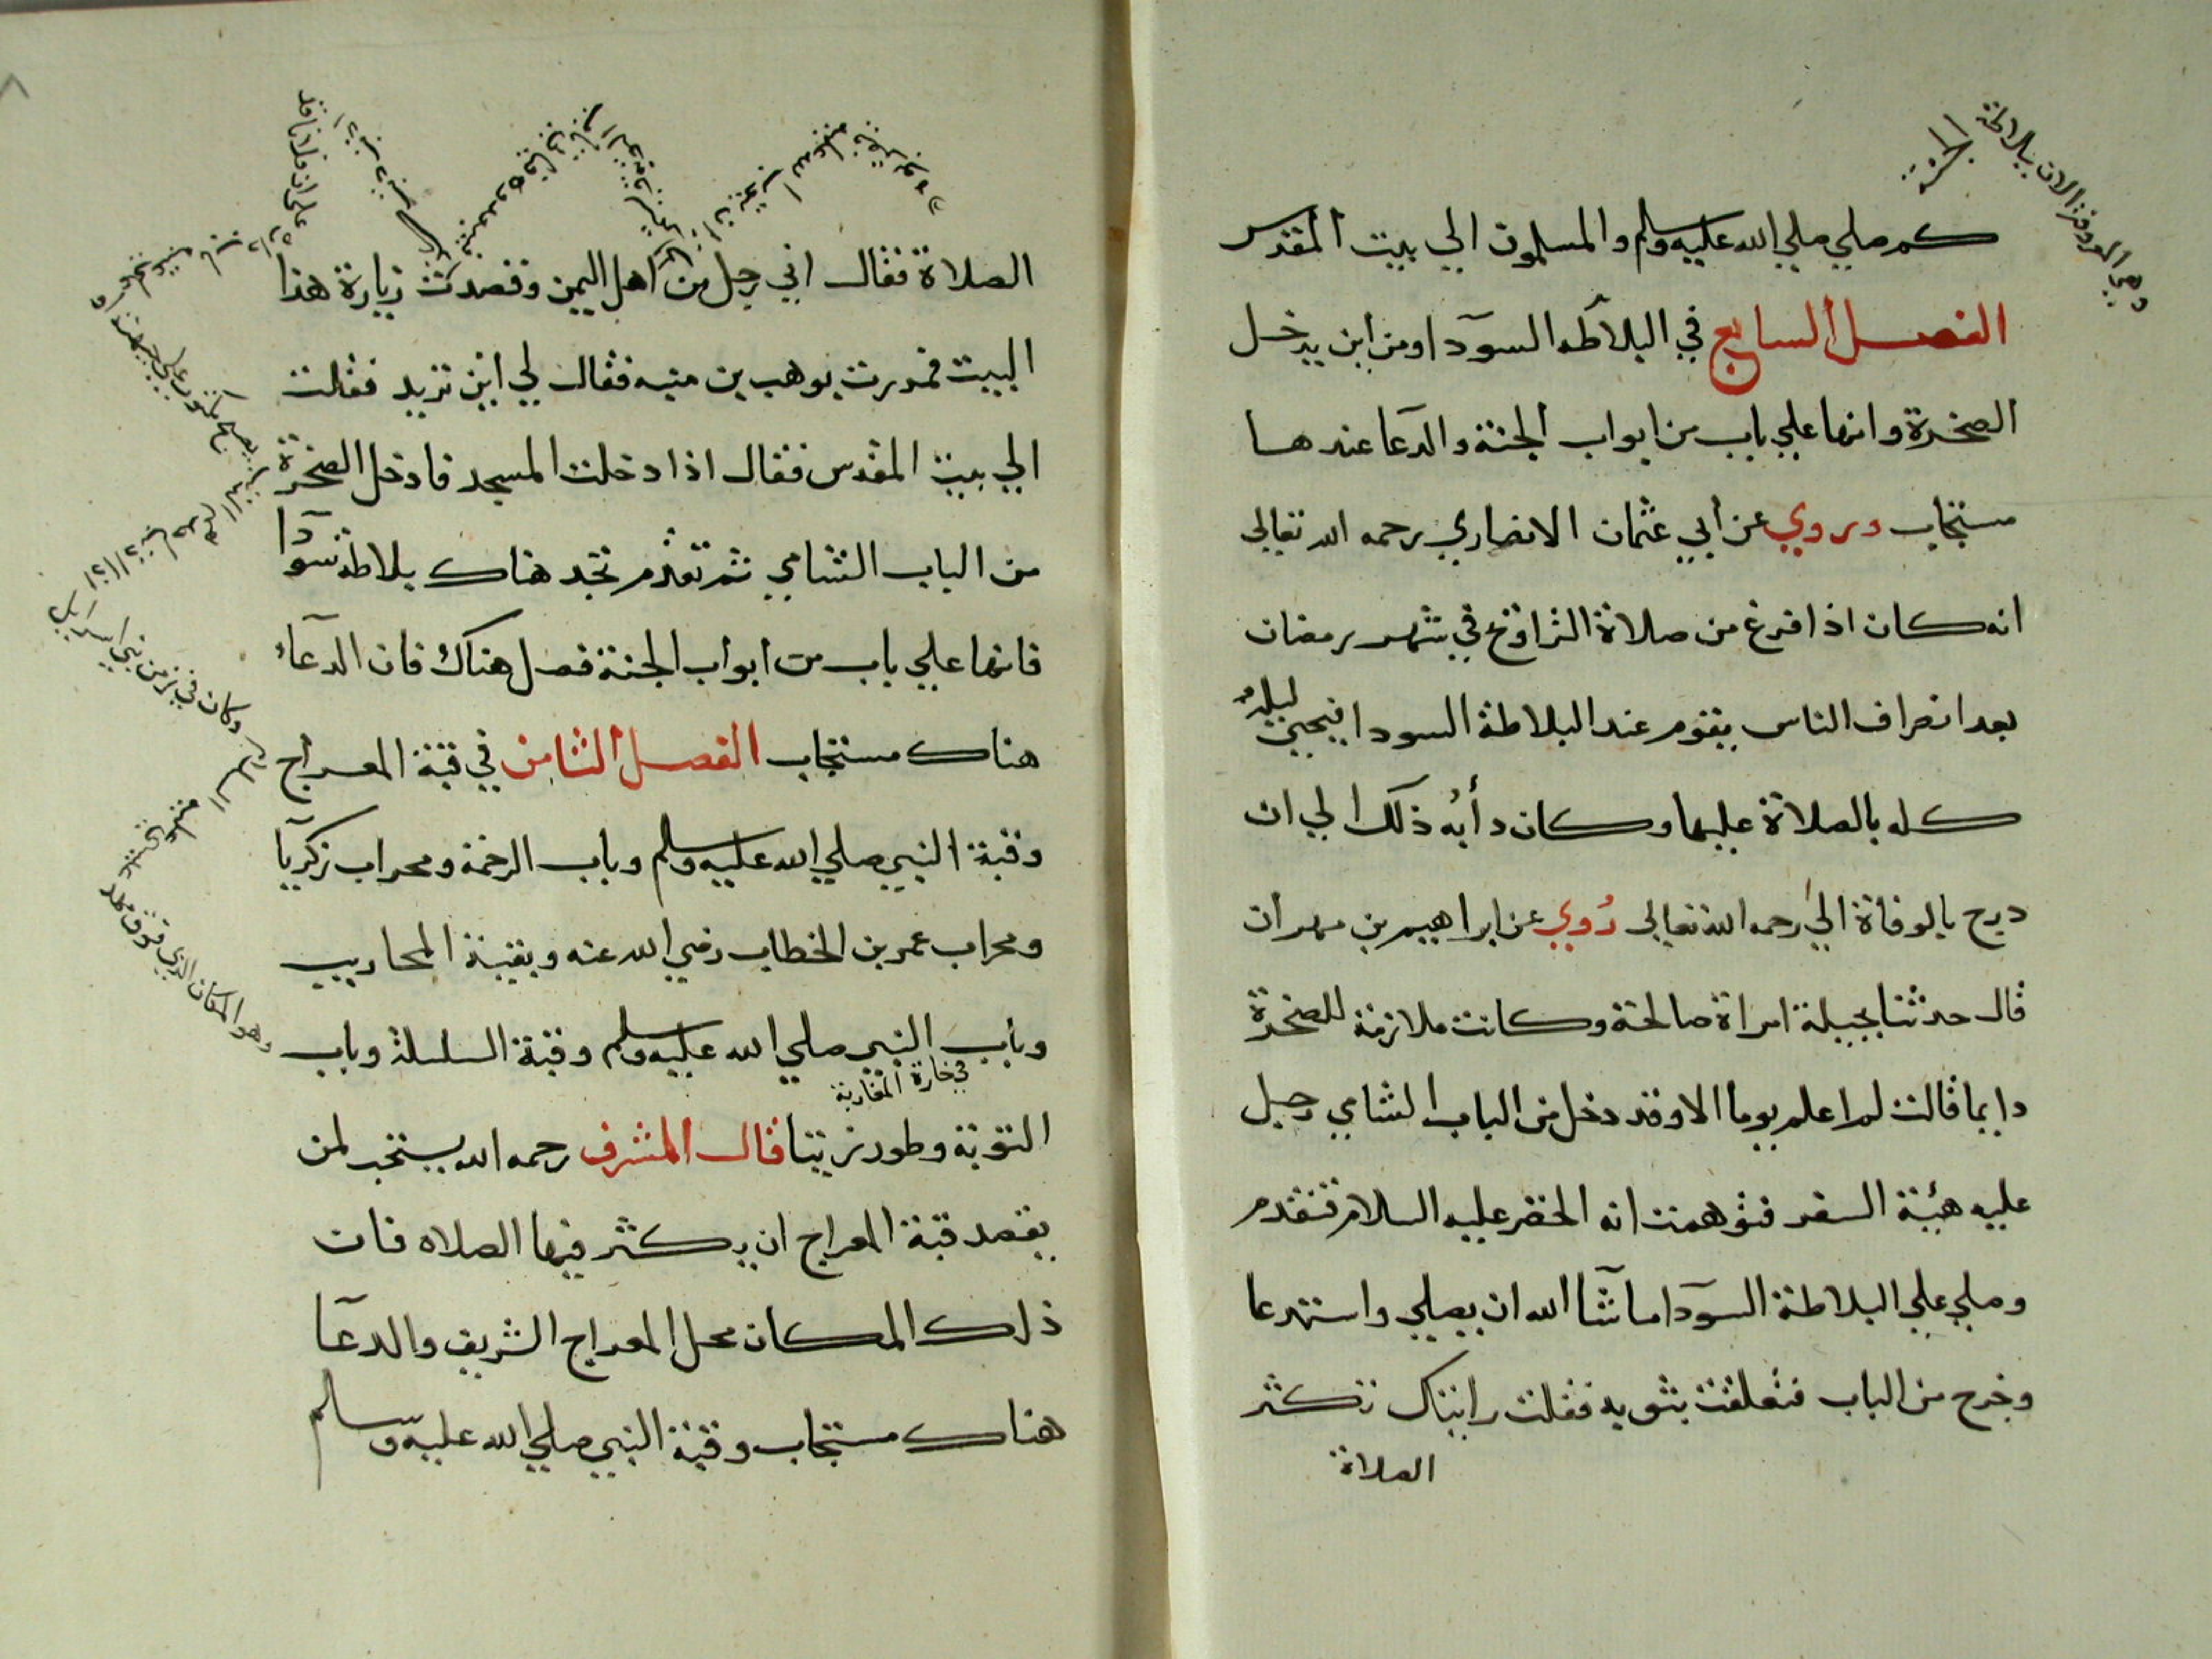 وهي المعروفة الان ببلاطة
الجنة
كم صلي صلي الله عليه وسلم والمسلمون الي بيت المقدس
الفصل السابع في البلاطه السودا ومن اين يدخل
الصخرة وانها علي باب من ابواب الجنة والدعا عندها
مستجاب وروي عن أبي عثمان الانصاري رحمه الله تعالى
انه كان اذا فرغ من صلاة التراويح في شهر رمضان
بعد انصراف الناس يقوم عند البلاطة السودا فيحيي ليله
كله بالصلاة عليها وكان دأبه ذلك الي ان
درج بالوفاة الي رحمه الله تعالى رُوي عن ابراهيم بن مهران
قال حدثنا بجيلة امراة صالحة وكانت ملازمة للصخرة
دايما قالت لم اعلم يوما الا وقد دخل من الباب الشامي رجل
عليه هيئة السفر فتوهمت انه الخضر عليه السلام فتقدم
وصلي علي البلاطة السودا ما شا الله ان يصلي واستدعا
وخرج من الباب فتعلقت بثوبه فقلت رايتك تكثر
الصلاة
الصلاة فقال اني رجل من اهل اليمن وقصدت زيارة هذا
البيت فمررت بوهب بن منبه فقال لي اين تريد فقلت
الي بيت المقدس فقال اذا دخلت المسجد فادخل الصخرة
من الباب الشامي ثم تقدم تجد هناك بلاطة سودا
فانها علي باب من ابواب الجنة فصل هناك فان الدعاء
هناك مستجاب الفصل الثامن في قبة المعراج
وقبة النبي صلي الله عليه وسلم وباب الرحمة ومحراب زكريا
ومحراب عمر بن الخطاب رضي الله عنه وبقية المحاريب
وباب النبي صلي الله عليه وسلم وقبة السلسلة وباب
في حارة المغاربة
التوبة وطور زيتا قال المشرف رحمه الله يستحب لمن
يقصد قبة المعراج ان يكثر فيها الصلاه فان
ذلك المكان محل المعراج الشريف والدعا
هناك مستجاب وقبة النبي صلي الله عليه وسلم
وكان في زمن بني اسرائيل
وهو المكان الذي فوق مهد
عيسي عليه
السلام